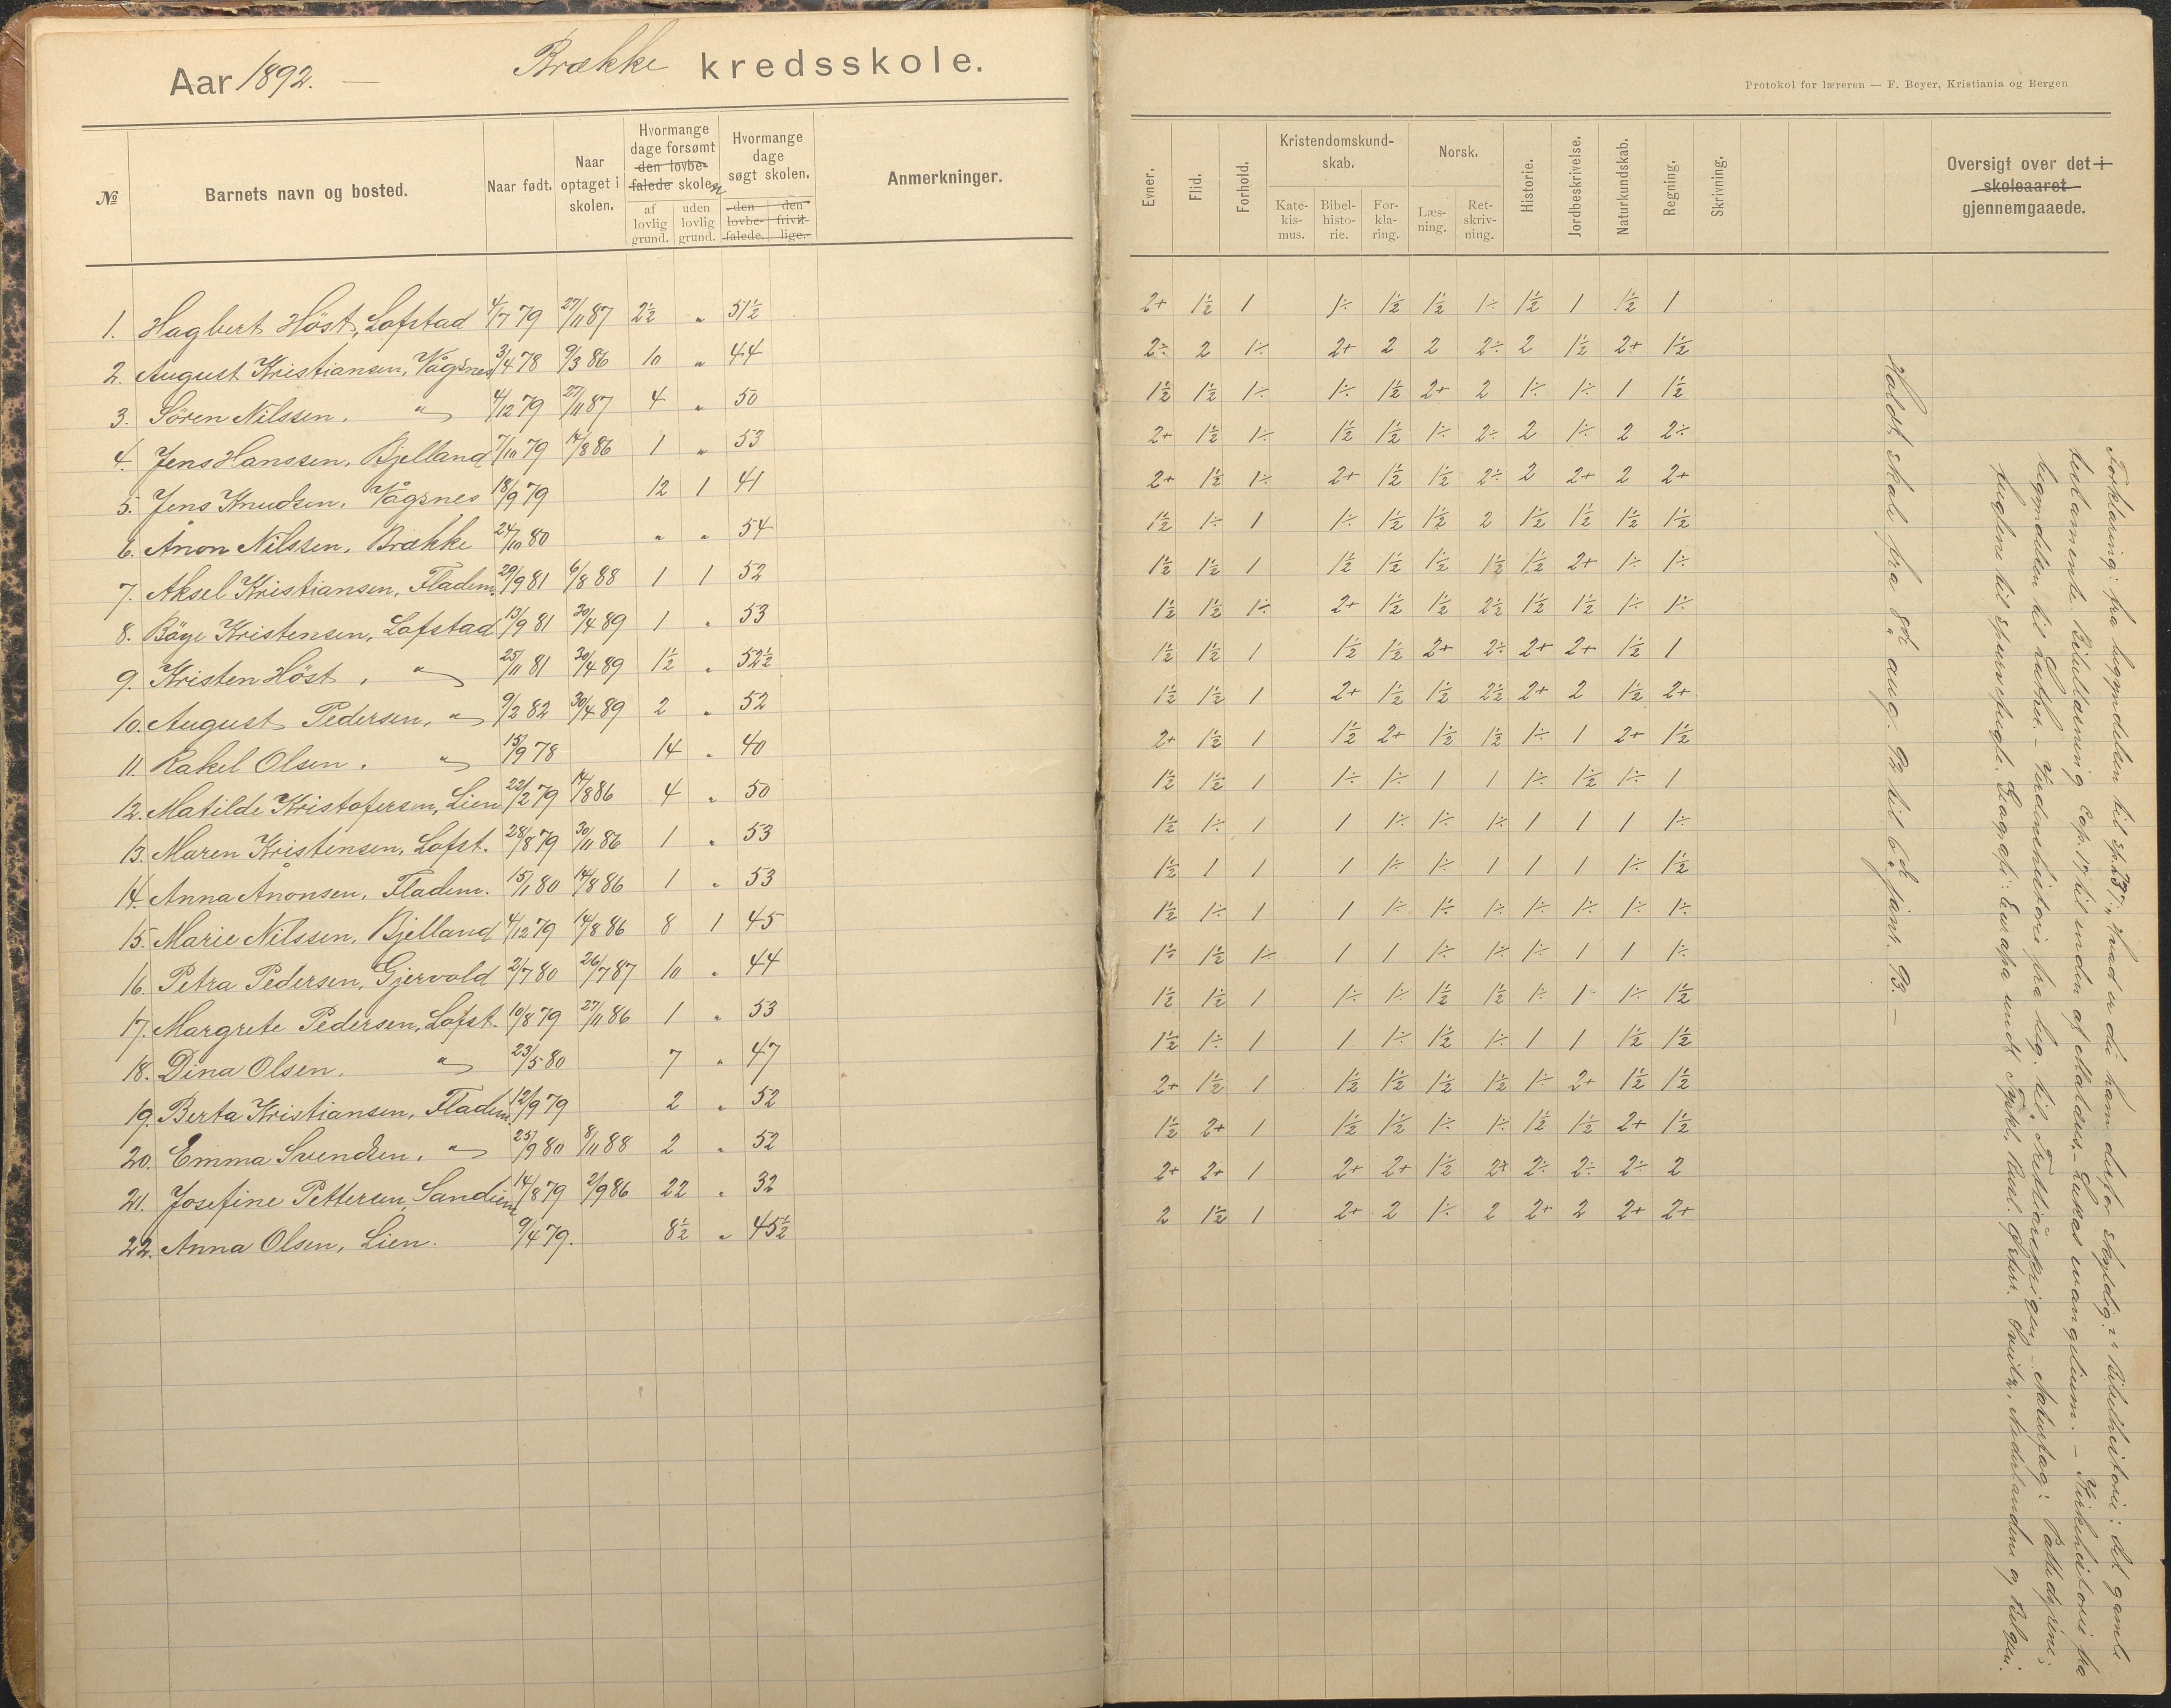 Aar 1892. — Brække kredsskole.
Protokol for læreren — F. Beyer, Kristiania og Bergen
№ Barnets navn og bosted. Naar født. Naar optaget i skolen. Hvormange dage forsømt den lovbe-falede skolen af lovlig grund. uden lovlig grund. Hvormange dage søgt skolen. den lovbe-falede. den frivil-lige. Anmerkninger.
Evner. Flid. Forhold. Kristendomskund-skab. Kate-kis-mus. Bibel-histo-rie. For-kla-ring. Norsk. Læs-ning. Ret-skriv-ning. Historie. Jordbeskrivelse. Naturkundskab. Regning. Skrivning. Oversigt over det i skoleaaret gjennemgaaede.
1. Hagbert Höst, Lofstad 4/7 79 27/11 87 2½ " 51½ 2+ 1½ 1 1÷ 1½ 1½ 1÷ 1½ 1 1½ 1
2. August Kristiansen, Vågsnes 3/4 78 9/3 86 10 " 44 2÷ 2 1÷ 2+ 2 2 2÷ 2 1½ 2+ 1½
3. Sören Nilssen. " 4/12 79 27/11 87 4 " 50 1½ 1½ 1÷ 1÷ 1½ 2+ 2 1÷ 1÷ 1 1½
4. Jens Hanssen, Bjelland 7/10 79 14/8 86 1 " 53 2+ 1½ 1÷ 1½ 1½ 1÷ 2÷ 2 1÷ 2 2÷
5. Jens Knudsen, Vågsnes 18/9 79 12 1 41 2+ 1½ 1÷ 2+ 1½ 1½ 2÷ 2 2+ 2 2+
6. Ånon Nilssen, Brække 24/10 80 " " 54 1½ 1÷ 1 1÷ 1½ 1½ 2 1½ 1½ 1½ 1½
7. Aksel Kristiansen, Fladem. 29/9 81 6/8 88 1 1 52 1½ 1½ 1 1½ 1½ 1½ 1½ 1½ 2+ 1÷ 1÷
8. Böye Kristensen, Lofstad 13/9 81 30/4 89 1 " 53 1½ 1½ 1÷ 2+ 1½ 1½ 2½ 1½ 1½ 1÷ 1÷
9. Kristen Höst, " 25/11 81 30/4 89 1½ " 52½ 1½ 1½ 1 1½ 1½ 2+ 2÷ 2+ 2+ 1½ 1
10. August Pedersen, " 9/2 82 30/4 89 2 " 52 1½ 1½ 1 2+ 1½ 1½ 2½ 2+ 2 1½ 2+
11. Rakel Olsen. " 15/9 78 14 " 40 2+ 1½ 1 1½ 2+ 1½ 1½ 1÷ 1 2+ 1½
12. Matilde Kristofersen, Lien 22/2 79 14/8 86 4 " 50 1½ 1½ 1 1÷ 1÷ 1 1 1÷ 1½ 1÷ 1
13. Maren Kristensen, Lofst. 28/8 79 30/11 86 1 " 53 1½ 1÷ 1 1 1÷ 1÷ 1÷ 1 1 1 1÷
14. Anna Ånonsen, Fladem. 15/1 80 14/8 86 1 " 53 1½ 1 1 1 1÷ 1÷ 1 1 1 1÷ 1½
15. Marie Nilssen, Bjelland 4/12 79 14/8 86 8 1 45 1½ 1÷ 1 1 1÷ 1÷ 1÷ 1÷ 1÷ 1÷ 1÷
16. Petra Pedersen, Gjervold 2/7 80 26/7 87 10 " 44 1÷ 1½ 1÷ 1 1 1÷ 1÷ 1÷ 1 1 1÷
17. Margrete Pedersen, Lofst. 10/8 79 27/11 86 1 " 53 1½ 1½ 1 1÷ 1÷ 1½ 1½ 1÷ 1 1÷ 1½
18. Dina Olsen. " 23/5 80 7 " 47 1½ 1÷ 1 1 1÷ 1½ 1÷ 1 1 1½ 1½
19. Berta Kristiansen, Fladem. 12/9 79 2 " 52 2+ 1½ 1 1½ 1½ 1½ 1½ 1÷ 2+ 1½ 1½
20. Emma Svendsen, " 25/9 80 8/11 88 2 " 52 1½ 2+ 1 1½ 1½ 1÷ 1÷ 1½ 1½ 2+ 1½
21. Josefine Pettersen, Sandum 14/8 79 2/9 86 22 " 32 2+ 2+ 1 2+ 2+ 1½ 2+ 2÷ 2÷ 2÷ 2
22. Anna Olsen, Lien. 9/4 79. 8½ " 45½ 2 1½ 1 2+ 2 1÷ 2 2+ 2 2+ 2+
Forklaring: fra begyndelsen til sp. 237: "Hvad er du ham derfor skyldig?" Bibelhistorie: det gamle
testamente. Bibellæsning Cap. 17 til enden af Mattæus. Lukas evangelium. – Kirkehistorie fra
begyndelsen til Luther. – Verdenshistorie fra beg. til Trediveårskrigen. – Naturfag: Pattedyrene;
fuglene til spurvefugle. Geografi: Europa undt. Tyskl. Rusl. Østerr. Sveitz, Nederlandene og Belgien.
Holdt skole fra 8de aug. 92 til 6de jan. 93. –